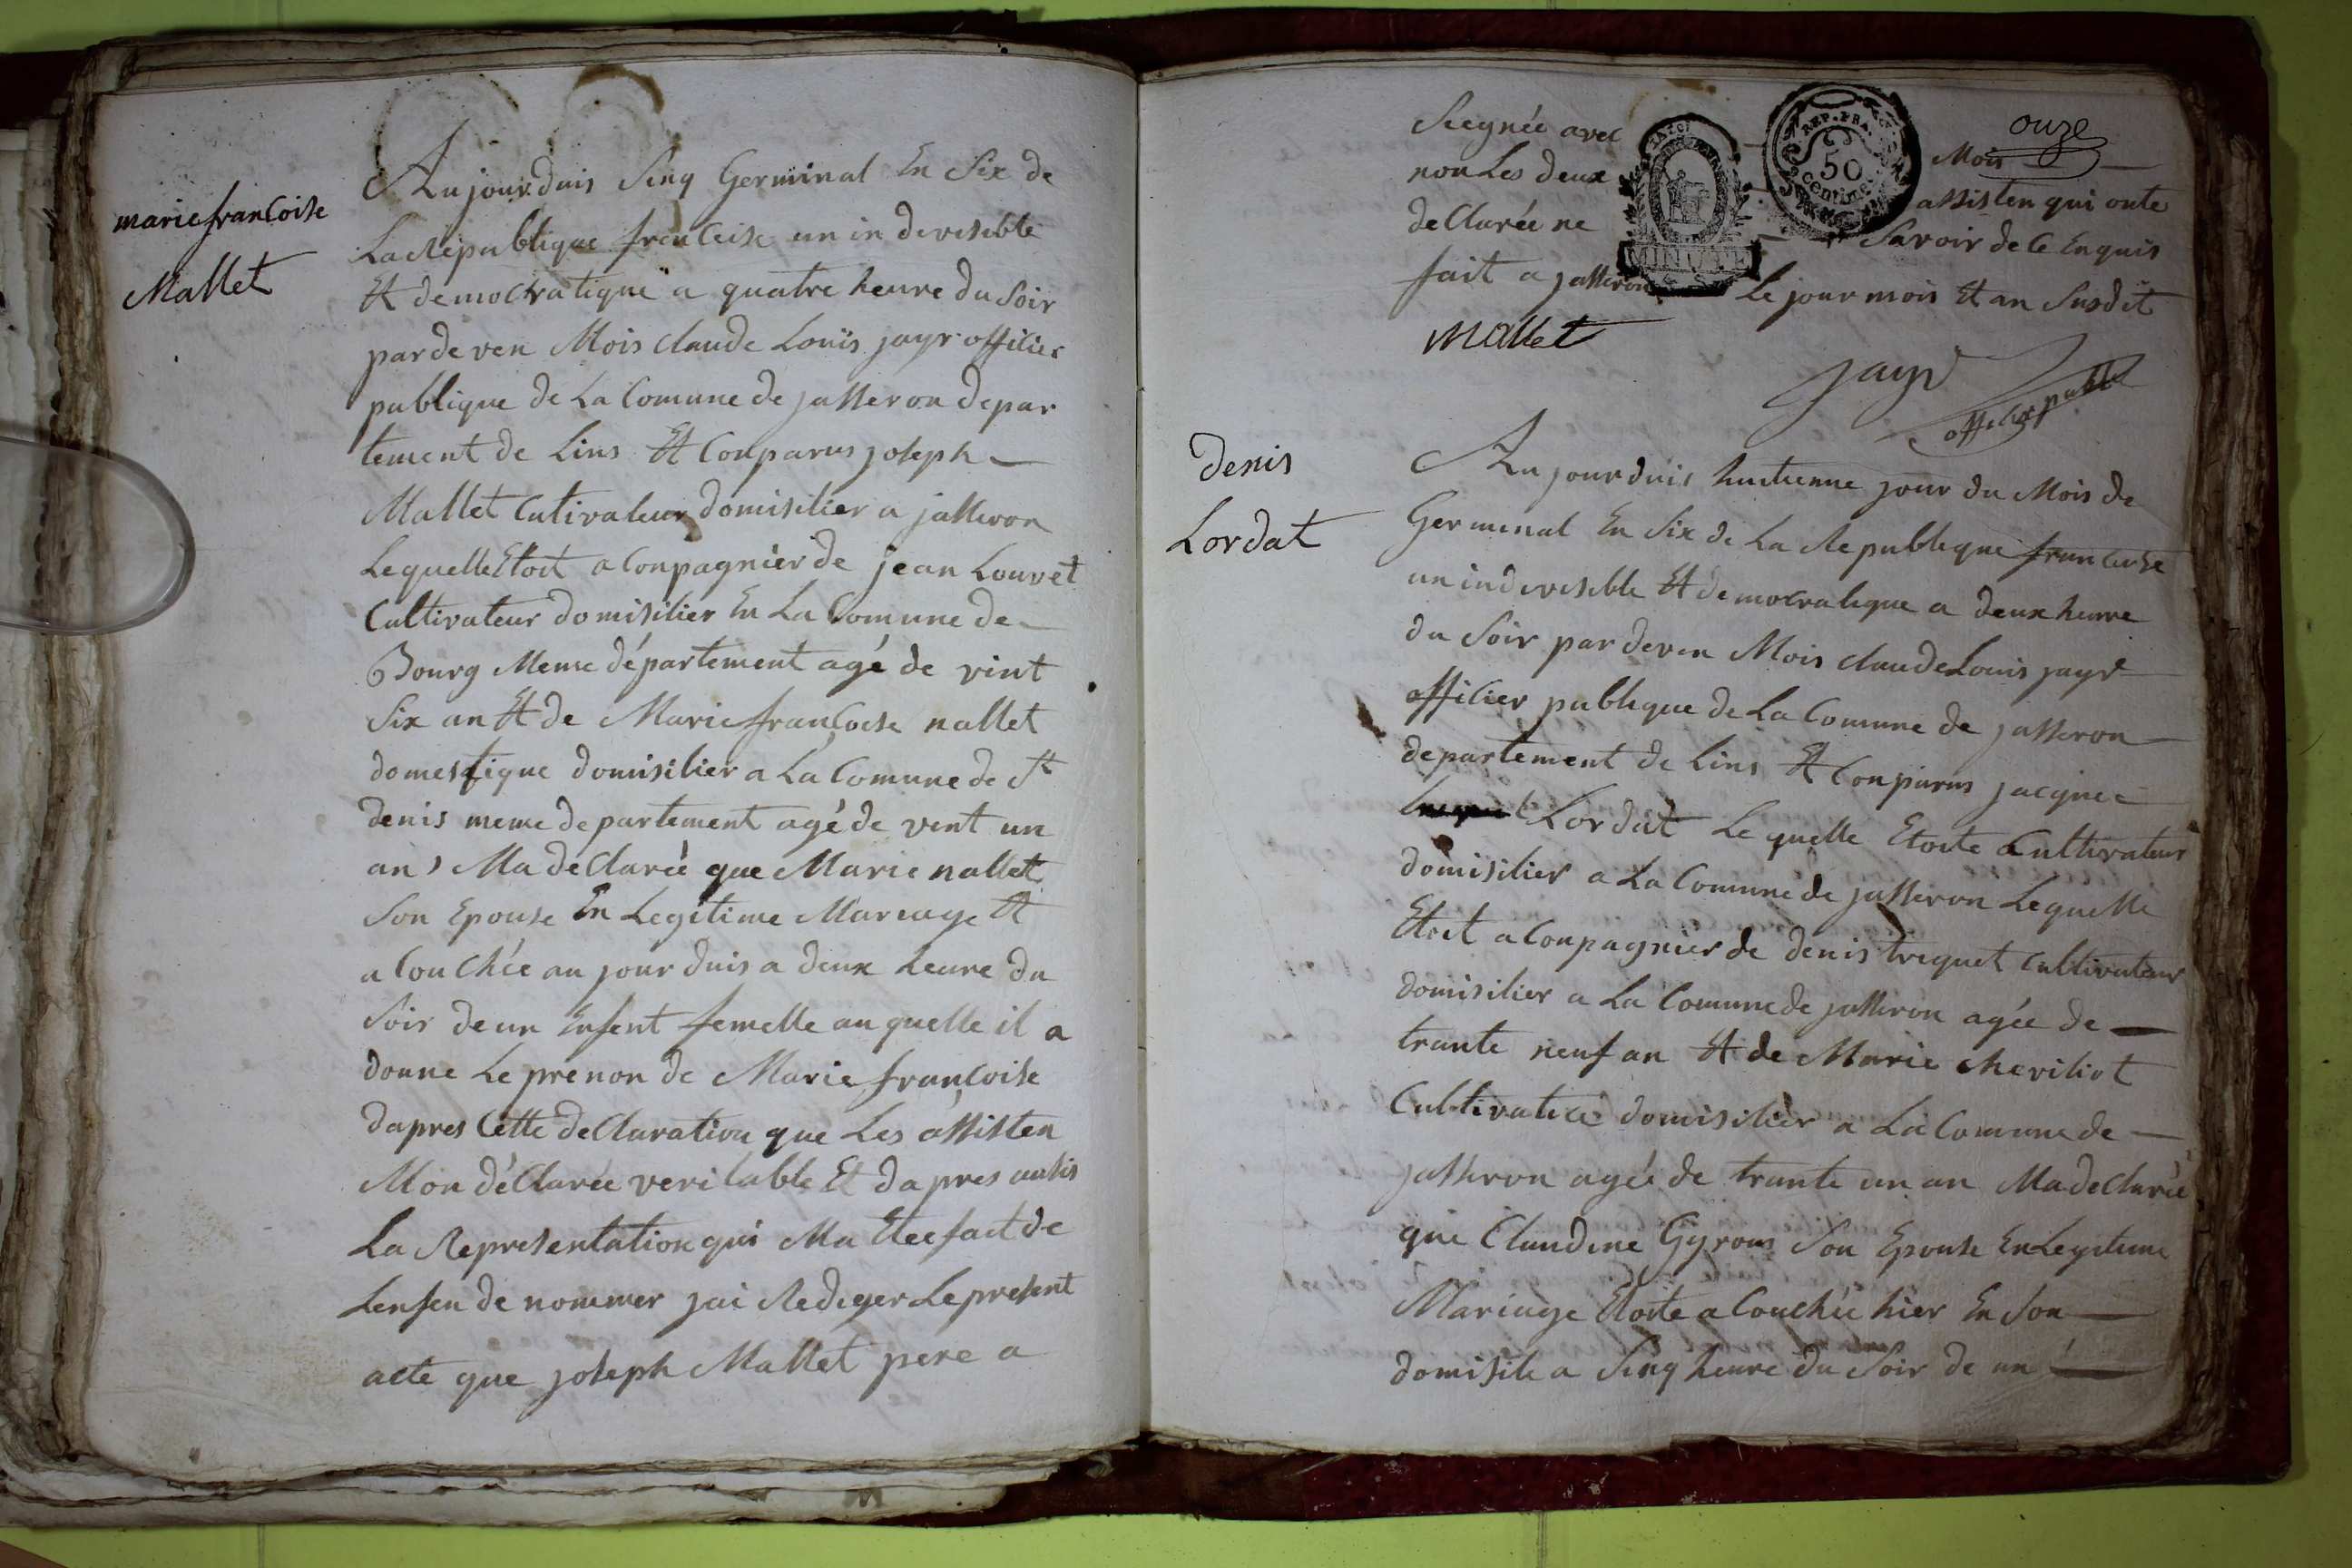 marie francoise
Mallet
Au jour duis Sinq Germinal En Six de
La Republique frenceise un in devisible
Et democratique a quatre heure du Soir
par de ven Mois claude Louis jayr officier
publique de La Comune de jasseron depar
tement de Lins Et Conparus joseph
Mallet Cutivateur domisilier a jasseron
Lequelle Etoit a Conpagnier de jean Louvet
Cultivateur domisilier En La Comune de
Bourg Meme département agé de vint
Six an Et de Marie francoise nallet
domestique domisilier a La Comune de St
denis meme departement agé de vent un
an) Ma de Clareé que Marie nallet
Son Epouse En Legitime Mareage Et
a Couchée au jour duis a deux heure du
Soir de un Enfent femelle au quelle il a
donne Le prenon de Marie francoise
dapres Cette de Claration que Les assisten
Mon déClarée veritable Et dapres ausis
La Representation qui Ma Etee fait de
Lenfen de nommer jai Rediger Le present
acte que joseph Mallet pere a
ouze
Siegnée avec Mois
non Les deux assisten qui onte
de Clarée ne Savoir de Ce Enquis
fait a jasseron Le jour mois Et an Susdit
REP. FRA.
50
centime
MINUTE
Mallet
jayr
officier publ
denis
Lordat
Au jour duis huitienne jour du Mois de
Germinal En Six de La Republique francaise
un indevisible Et democratique a deux heure
du Soir par deven Mois claude Louis jayr
officier publique de La Comune de jasseron
departement de Lins Et Conparus jacque
Lordat Le quelle Etoite Cultivateur
domisilier a La Comune de jasseron Lequelle
Etoit a Conpagnier de denis trequet Cultivateur
domisilier a La Comune de jasseron agée de
trante neuf an Et de Marie cheviliot
Cultivatice domisilier a La Comune de
jasseron agée de trante un an Ma de Clarée
que Claudine Gyrous Son Epouse En Legitime
Mariage Etoite a Couchée hier En Son
domisile a Sinq heure du Soir de un